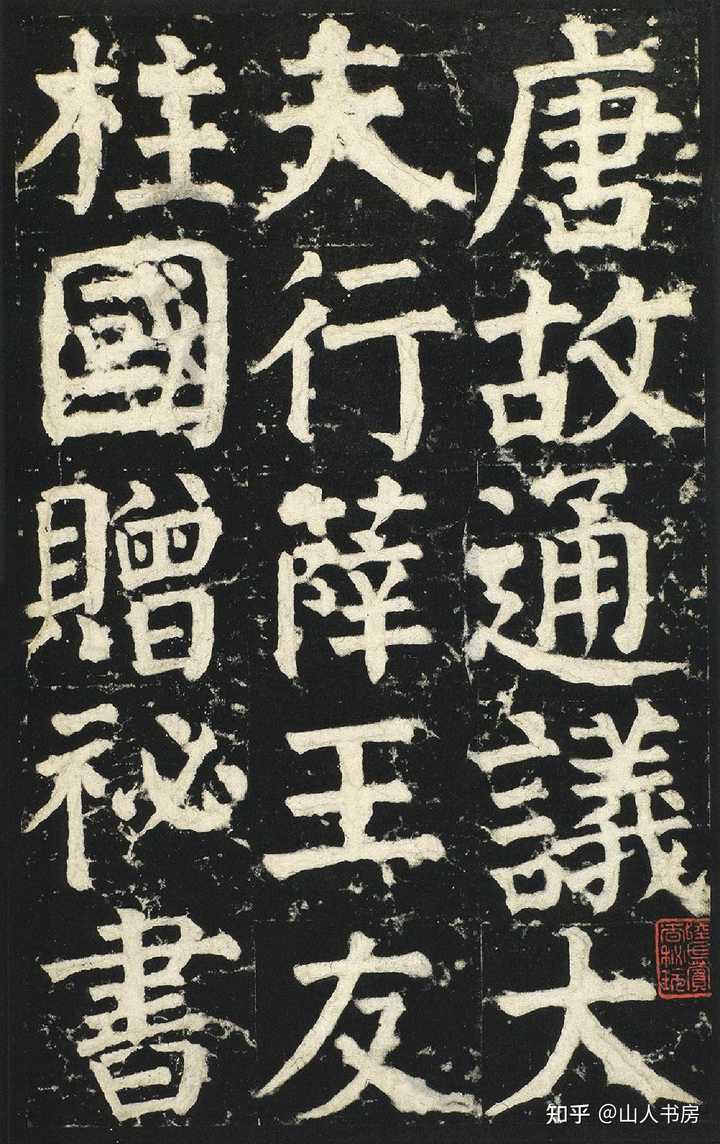 唐故通議大
夫行薛王友
柱國贈祕書
知乎 @山人书房